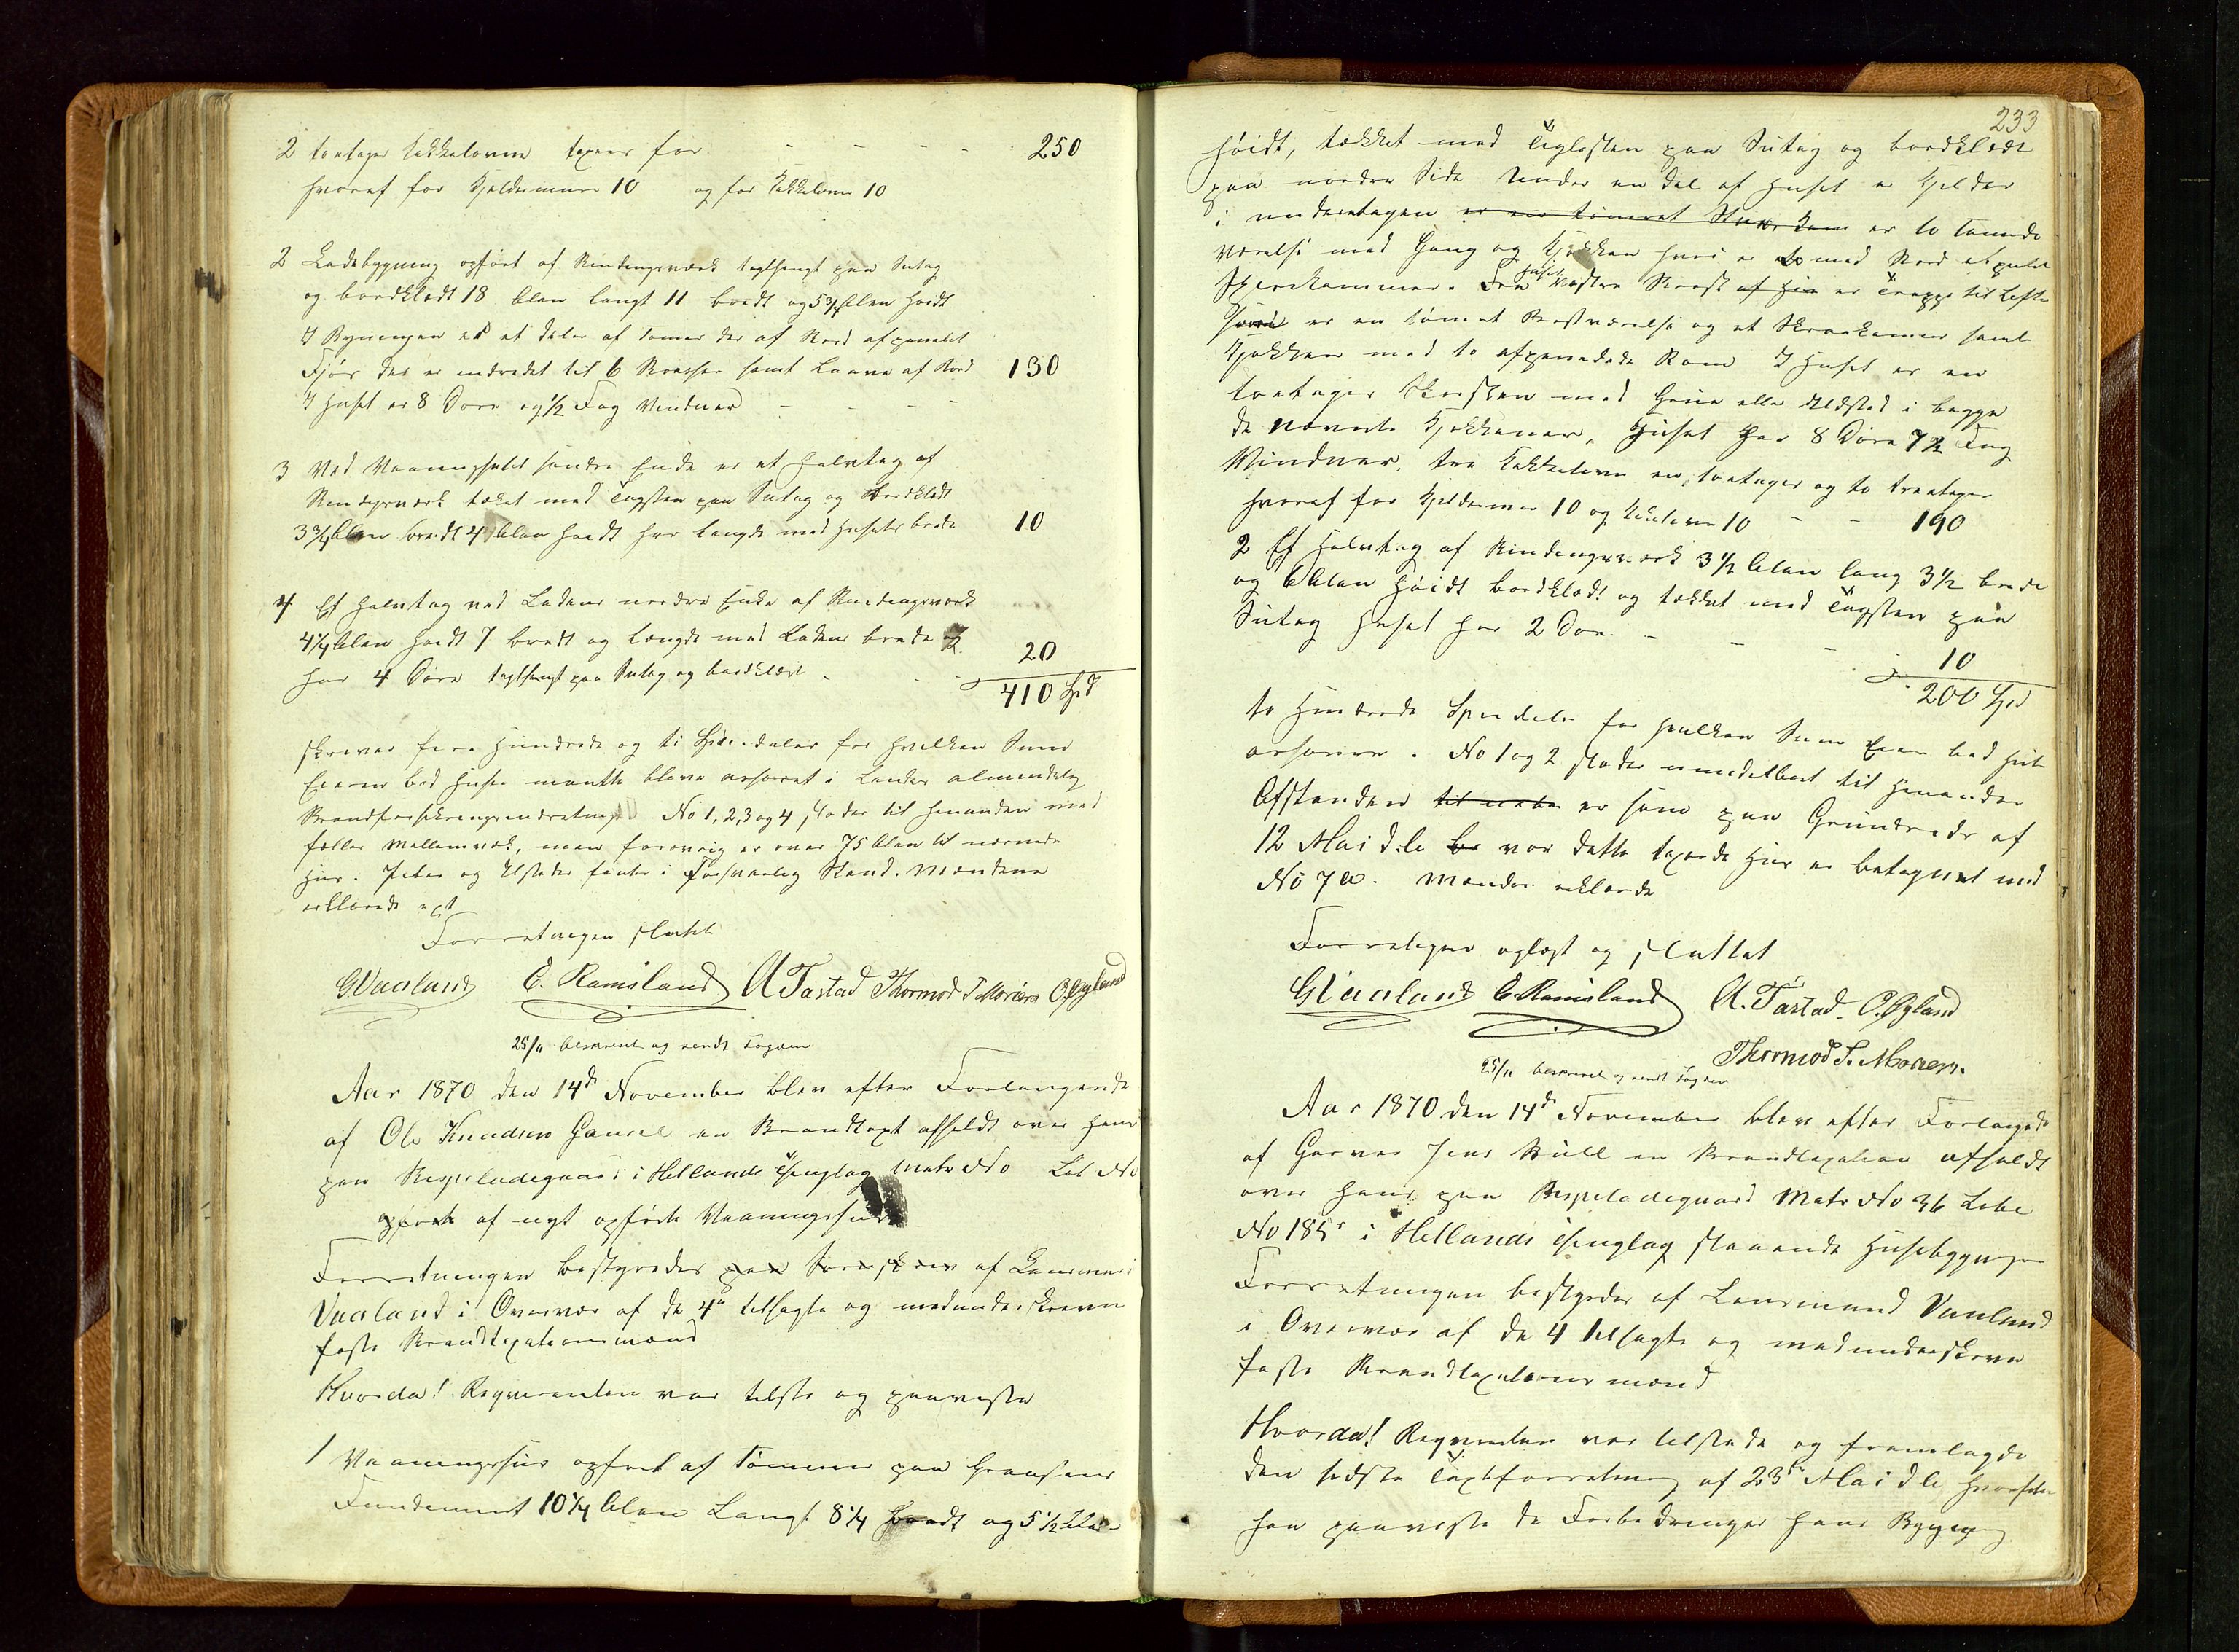 2 toetages Kakkelovne taxeres for - - - - 250
hvoraf for Kjeldermuren 10 og for Kakkelovne 10
2 Ladebygning opført af Bindingsværk teglhængt paa Sutag
og bordklædt 18 Alen langt 11 bredt og 5¾ Alen høidt
I Bygningen er et dele af Tømmer der af Bord afpanelet
Fjøs der er indredet til 6 samt Laave af Bord 130
I Huset er 8 Døre og ½ Fag Vinduer - - -
3 Ved Vaaningshusets søndre Ende er et Halvtag af
Bindingsværk tækket med Tagsten paa Sutag og bordklædt
3¾ Alen bredt 4 Alen høidt har længde med Husets brede 10
4 Et Halvtag ved Ladens nordre Ende af Bindingsværk
4¼ Alen høidt 7 bredt og længde med Ladens brede og
har 4 Døre teglhængt paa Sutag og bordklædt - 20
410 Spd
skriver fire Hundrede og ti Speciedaler for hvilken Sum
Eieren bad Husene maatte blive assureret i Landets almindelig
Brandforsikringsindretning. No 1, 2, 3 og 4 støder til hinanden med
fælles Mellemvæg, men forøvrig er over 75 Alen til nærmeste
Huus. Piber og Ildsteder fandtes i forsvarlig Stand. Mændene
erklærede
Forretningen sluttet
GVaaland E. Ramsland A Tastad Thormod T. Moriers O. Øgland
25/11 beskrevet og sendt Fogden
Aar 1870 den 14de November blev efter Forlangende
af Ole Knudsen Gausel en Brandtaxt afholdt over hans
paa Bispeladegaard i Hetlands Thinglag Matr No Lob No
opførte af nyt opførte Vaaningshuus
Forretningen bestyredes paa af Lensmand
Vaaland i Overvær af de 4 tilsagte og medunderskrevne
faste Brandtaxationsmænd
Hvorda! Reqvirenten var tilstede og paaviste
1 Vaaningshus opført af Tømmer paa Graasteens
Fundament 10¼ Alen Langt 8¼ bredt og 5½ Alen
233
høidt, tækket med Teglsten paa Sutag og bordklædt
paa nordre Side Under en del af Huset er Kjelder
i underetagen er en tømret Stue, er to Tømrede
Værelse med Gang og Kjøkken hvori er to med Bord afpanelt
Spisekammer. Fra Huset vestre af Hus er Trappe til Loftet
hvori er en tømret Bestværelse og et Skraakammer samt
Kjøkken med to afpanelede Rum I Huset er en
toetages Skorsten med Grue eller Ildsted i begge
de nævnte Kjøkkener. Huset har 8 Døre 7½ Fag
Vinduer, tre Kakkelovne en toetages og to treetages
hvoraf for Kjeldermur 10 og Kakelovne 10 - - 190
2 Et Halvtag af Bindingsværk 3½ Alen lang 3½ brede
og 6 Alen høidt bordklædt og tækket med Tagsten paa
Sutag Huset har 2 Døre. - - - 10
200 Spd
to Hundrede Speciedaler for hvilken Sum Eieren bad Huset
assureret. No 1 og 2 støder umiddelbart til hinanden
Afstanden til er som paa Grundrids af
12 Mai d.A. hvor dette taxerede Huus er betegnet med
No 7a. Mændene erklærede
Forretningen oplæst og sluttet
GVaaland E. Ramsland A. Tastad. O. Øgland
Thormod T. Moriers.
25/11 beskrevet og sendt Fogden
Aar 1870 den 14de November blev efter Forlangende
af Garver Jens Bull en Brandtaxation afholdt
over hans paa Bispeladegaard Matr No 36 Lobe
No 185r i Hetlands Thinglag staaende Husebygninger
Forretningen bestyredes af Lensmand Vaaland
i Overvær af de 4 tilsagte og medunderskrevne
faste Brandtaxationsmænd
Hvorda! Reqvirenten var tilstede og fremlagde
den sidste Taxtforretning af 23de Mai d.A. hvorefter
han paaviste de Forbedringer hans Bygning